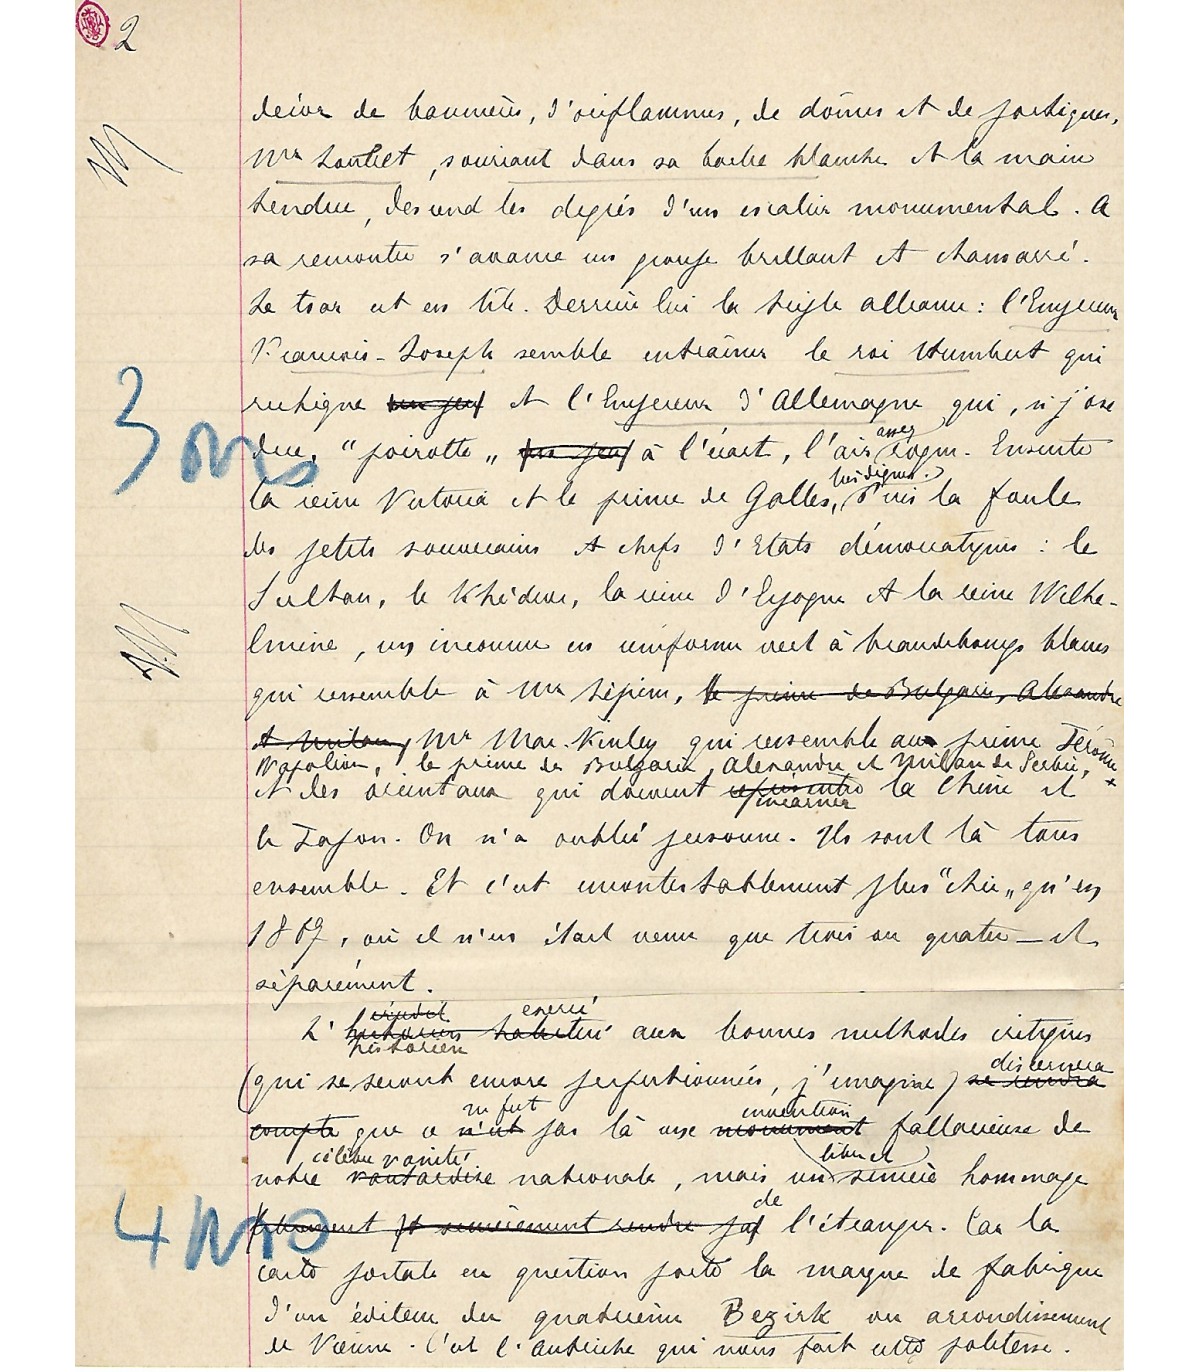 2
décor de bannières, d'oriflammes, de dômes et de portiques,
Mr Loubet, souriant dans sa barbe blanche et la main
tendue, descend les degrés d'un escalier monumental. A
sa rencontre s'avance un groupe brillant et chamarré.
Le tsar est en tête. Derrière lui la triple alliance : l'Empereur
François-Joseph semble entraîner le roi Humbert qui
rechigne un peu et l'Empereur d'Allemagne qui, si j'ose
dire, "poirotte" un peu à l'écart, l'air assez rogue. Ensuite
la reine Victoria et le prince de Galles, très dignes. Puis la foule
des petits souverains et chefs d'Etats démocratiques : le
Sultan, le Khédive, la reine d'Espagne et la reine Wilhe-
lmine, un inconnu en uniforme vert à brandebourgs blancs
qui ressemble à Mr Lépine, le prince de Bulgarie, Alexandre
et Milan, Mr Mac-Kinley qui ressemble au prince Jérôme
Napoléon, le prince de Bulgarie, Alexandre et Milan de Serbie,
et des orientaux qui doivent représenter incarner la Chine et
le Japon. On n'a oublié personne. Ils sont là tous
ensemble. Et c'est incontestablement plus "chic" qu'en
1867, où il n'en était venu que trois ou quatre — et
séparément.
érudit exercé
L' historien habitué aux bonnes méthodes critiques
historien
(qui se seront encore perfectionnées, j'imagine) se rendra discernera
compte que ce n'est ne fut pas là une monument invention fallacieuse de
notre vantardise célèbre vanité nationale, mais un libre et sincère hommage
et sincèrement rendu par de l'étranger. Car la
carte postale en question porte la marque de fabrique
d'un éditeur du quatrième Bezirk ou arrondissement
de Vienne. C'est l'Autriche qui nous fait cette politesse.
3
4